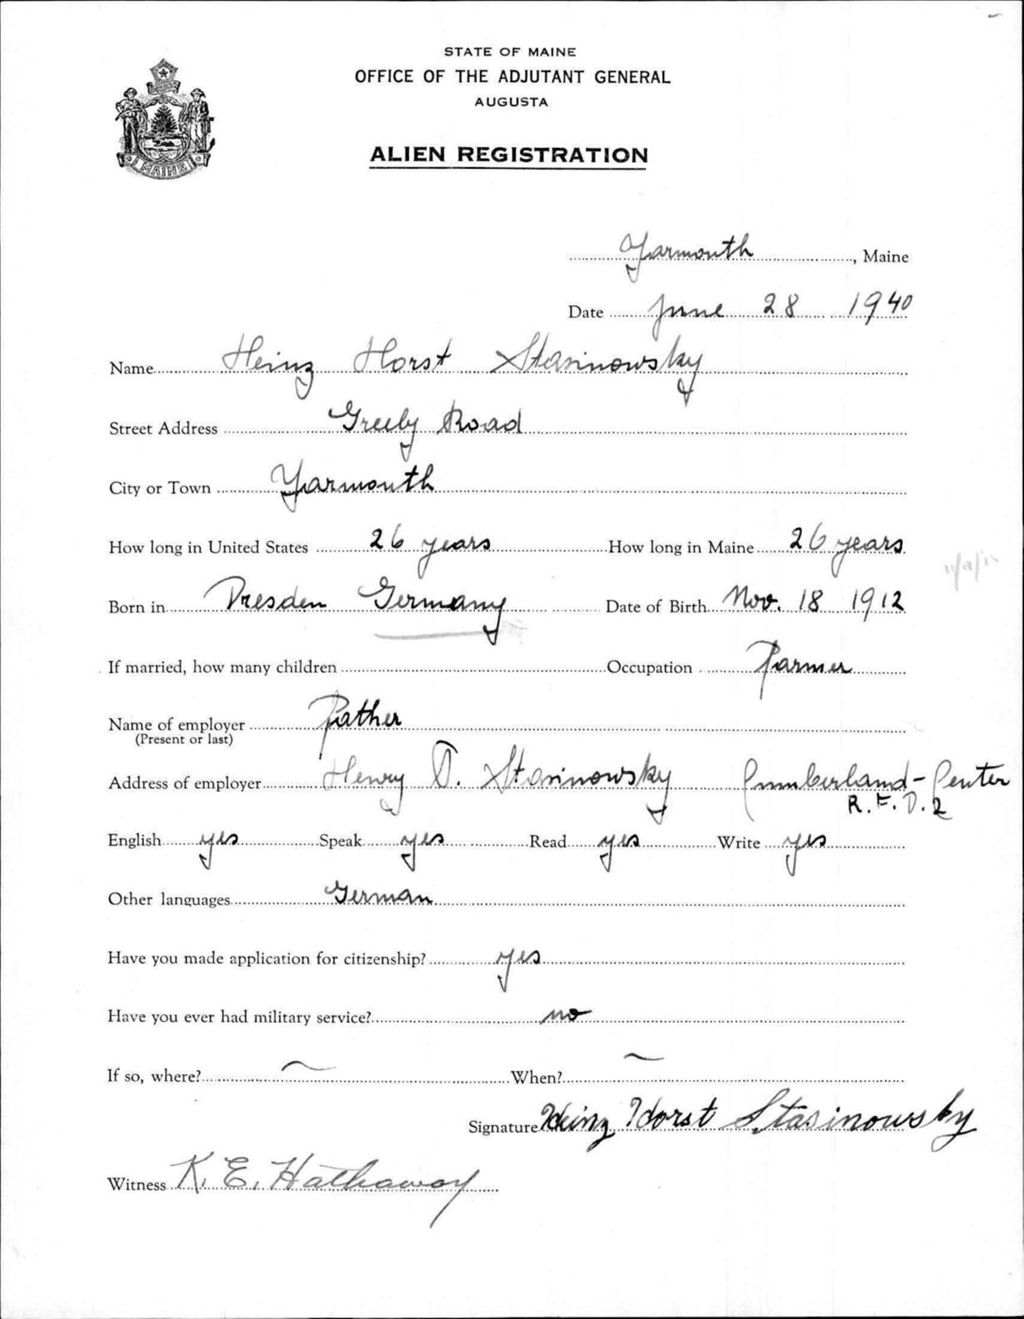 STATE OF MAINE
OFFICE OF THE ADJUTANT GENERAL
AUGUSTA
ALIEN REGISTRATION
MAINE
Yarmouth, Maine
Date June 28 1940
Name Heinz Horst Stasinowsky
Street Address Greely Road
City or Town Yarmouth
How long in United States 26 years How long in Maine 26 years
Born in Dresden Germany Date of Birth Nov. 18 1912
If married, how many children Occupation Farmer
Name of employer Father
(Present or last)
Address of employer Henry O. Stasinowsky Cumberland-Center
R.F.D. 2
English yes Speak yes Read yes Write yes
Other languages German
Have you made application for citizenship? yes
Have you ever had military service? no
If so, where? ~ When? ~
Signature Heinz Horst Stasinowsky
Witness K. E. Hathaway